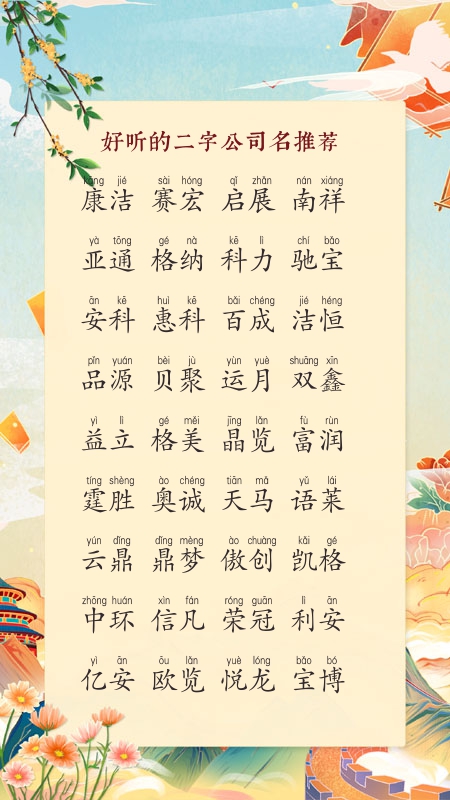 好听的二字公司名推荐
kāng jié sài hóng qǐ zhǎn nán xiáng
康洁 赛宏 启展 南祥
yà tōng gé nà kē lì chí bǎo
亚通 格纳 科力 驰宝
ān kē huì kē bǎi chéng jié héng
安科 惠科 百成 洁恒
pǐn yuán bèi jù yùn yuè shuāng xīn
品源 贝聚 运月 双鑫
yì lì gé měi jīng lǎn fù rùn
益立 格美 晶览 富润
tíng shèng ào chéng tiān mǎ yǔ lái
霆胜 奥诚 天马 语莱
yún dǐng dǐng mèng ào chuàng kǎi gé
云鼎 鼎梦 傲创 凯格
zhōng huán xìn fán róng guān lì ān
中环 信凡 荣冠 利安
yì ān ōu lǎn yuè lóng bǎo bó
亿安 欧览 悦龙 宝博